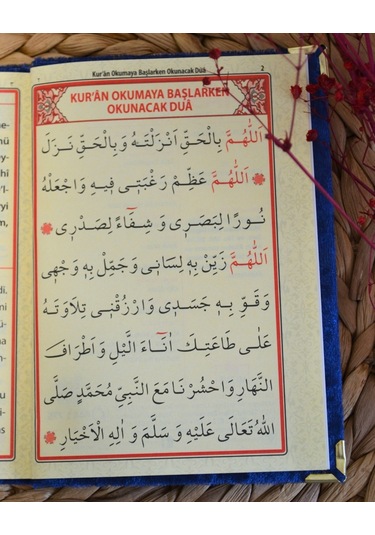 Kur'ân Okumaya Başlarken Okunacak Duâ 2
KUR'ÂN OKUMAYA BAŞLARKEN
OKUNACAK DUÂ
اَللّٰهُمَّ بِالْحَقِّ اَنْزَلْتَهُ وَبِالْحَقِّ نَزَلَ
اَللّٰهُمَّ عَظِّمْ رَغْبَتٖى فٖيهِ وَاجْعَلْهُ
نُورًا لِبَصَرٖى وَ شِفَٓاءً لِصَدْرٖى
اَللّٰهُمَّ زَيِّنْ بِهٖ لِسَانٖى وَ جَمِّلْ بِهٖ وَجْهٖى
وَقَوِّ بِهٖ جَسَدٖى وَارْزُقْنٖى تِلَاوَتَهُ
عَلٰى طَاعَتِكَ اٰنَٓاءَ الَّيْلِ وَ اَطْرَافَ
النَّهَارِ وَاحْشُرْنَا مَعَ النَّبِىِّ مُحَمَّدٍ صَلَّى
اللّٰهُ تَعَالٰى عَلَيْهِ وَ سَلَّمَ وَ اٰلِهِ الْاَخْيَارِ